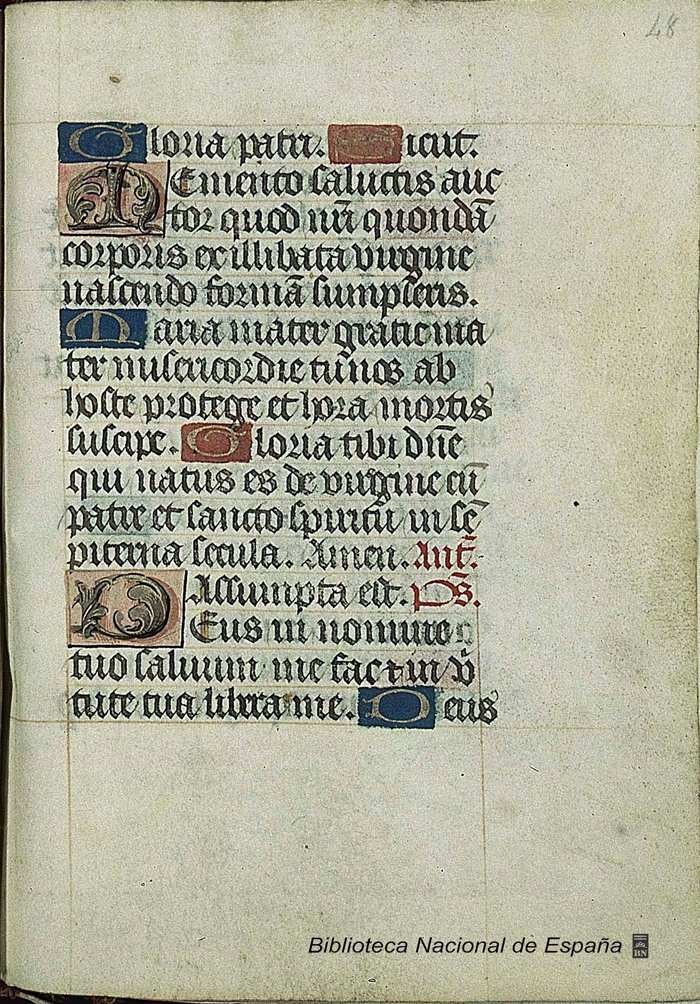 48
Gloria patri. Sicut.
Memento salutis auc
tor quod nr̄i quondā
corporis ex illibata virgine
nascendo formā sumpseris.
Maria mater gratie ma
ter misericordie tu nos ab
hoste protege et hora mortis
suscipe. Gloria tibi dn̄e
qui natus es de virgine cū
patre et sancto spiritu in sē
piterna secula. Amen. Ant̄.
Assumpta est. Ps̄.
Deus in nomine
tuo salvum me fac et in v̄
tute tua libera me. Deus
Biblioteca Nacional de España
BN